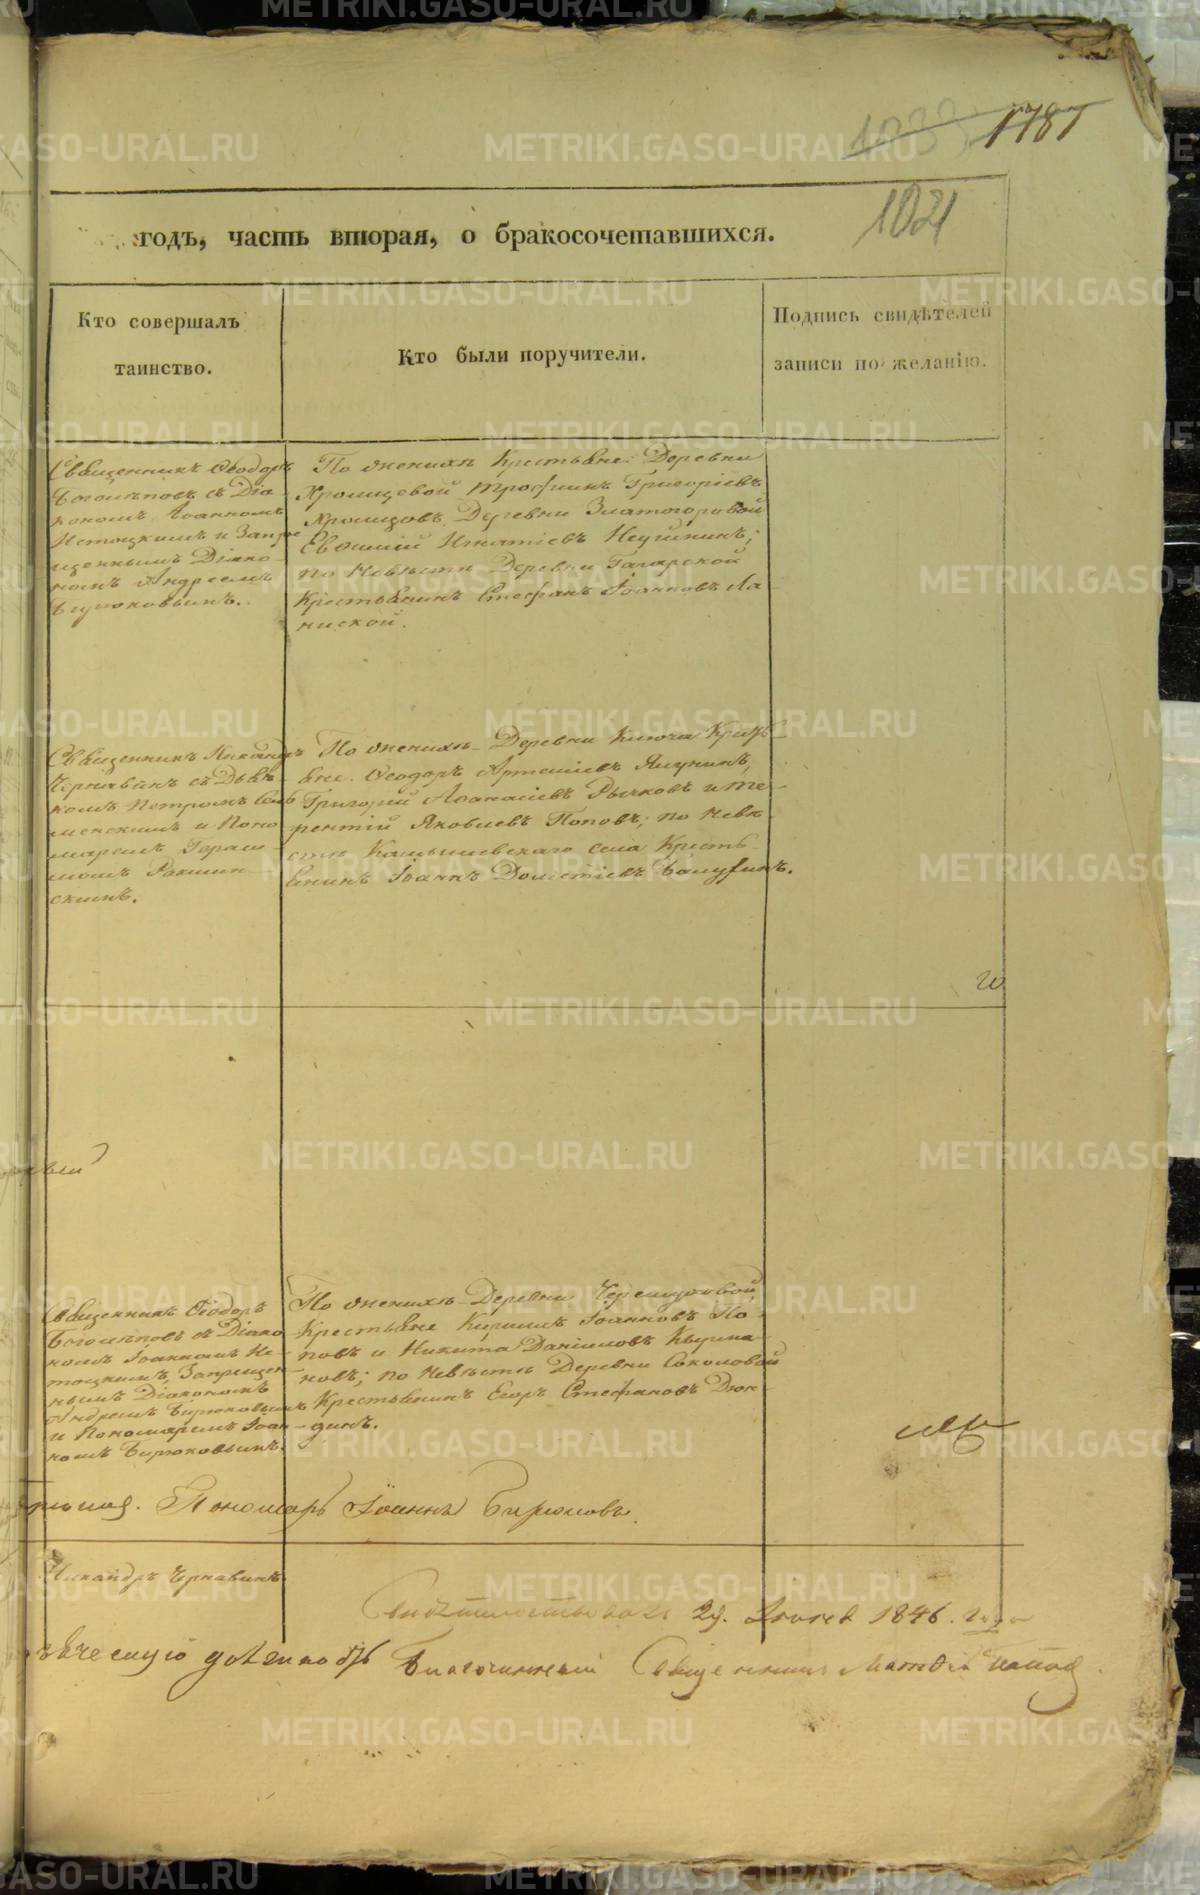 1787
1021
годъ, часть вторая, о бракосочетавшихся.
Кто совершалъ
таинство.
Кто были поручители.
Подпись свидѣтелей
записи по желанію.
Священникъ Ѳеодоръ
Боголѣповъ съ Діа-
кономъ Іоанномъ
Истоцкимъ и Запре-
щеннымъ Діако-
номъ Андреемъ
Бирюковымъ.
По женихѣ Крестьяне: Деревни
Хромцовой Трофимъ Григоріевъ
Хромцовъ, Деревни Златогоровой
Евѳимій Игнатіевъ Неуйминъ;
по Невѣстѣ Деревни Гагарской
Крестьянинъ Стефанъ Іоанновъ Ла-
ниской.
Священникъ Никандръ
Чернавинъ съ Дьяч-
комъ Петромъ
менскимъ и Поно-
маремъ Гераси-
момъ
скимъ.
По женихѣ Деревни Ключа Кресть-
яне Ѳеодоръ Артеміевъ Ялунинъ,
Григорій Аѳанасіевъ Рычковъ и Те-
рентій Яковлевъ Поповъ; по Невѣ-
стѣ села Кресть-
янинъ Іоаннъ Дометіевъ
Священникъ Ѳеодоръ
Боголѣповъ съ Діако-
номъ Іоанномъ Ис-
тоцкимъ, Запрещен-
нымъ Діакономъ
Андреемъ Бирюковымъ
и Пономаремъ Іоан-
номъ Бирюковымъ.
По женихѣ Деревни Черемуховой,
Крестьяне Кириллъ Іоанновъ По-
повъ и Никита Даніиловъ
новъ; по Невѣстѣ Деревни Соколовой
Крестьянинъ Егоръ Стефановъ Дюк-
динъ.
Пономарь Іоаннъ Бирюковъ.
Никандръ Чернавинъ
Свидѣтельствовалъ 29. 1846. года
должность Благочинный Священникъ Поповъ
METRIKI.GASO-URAL.RU